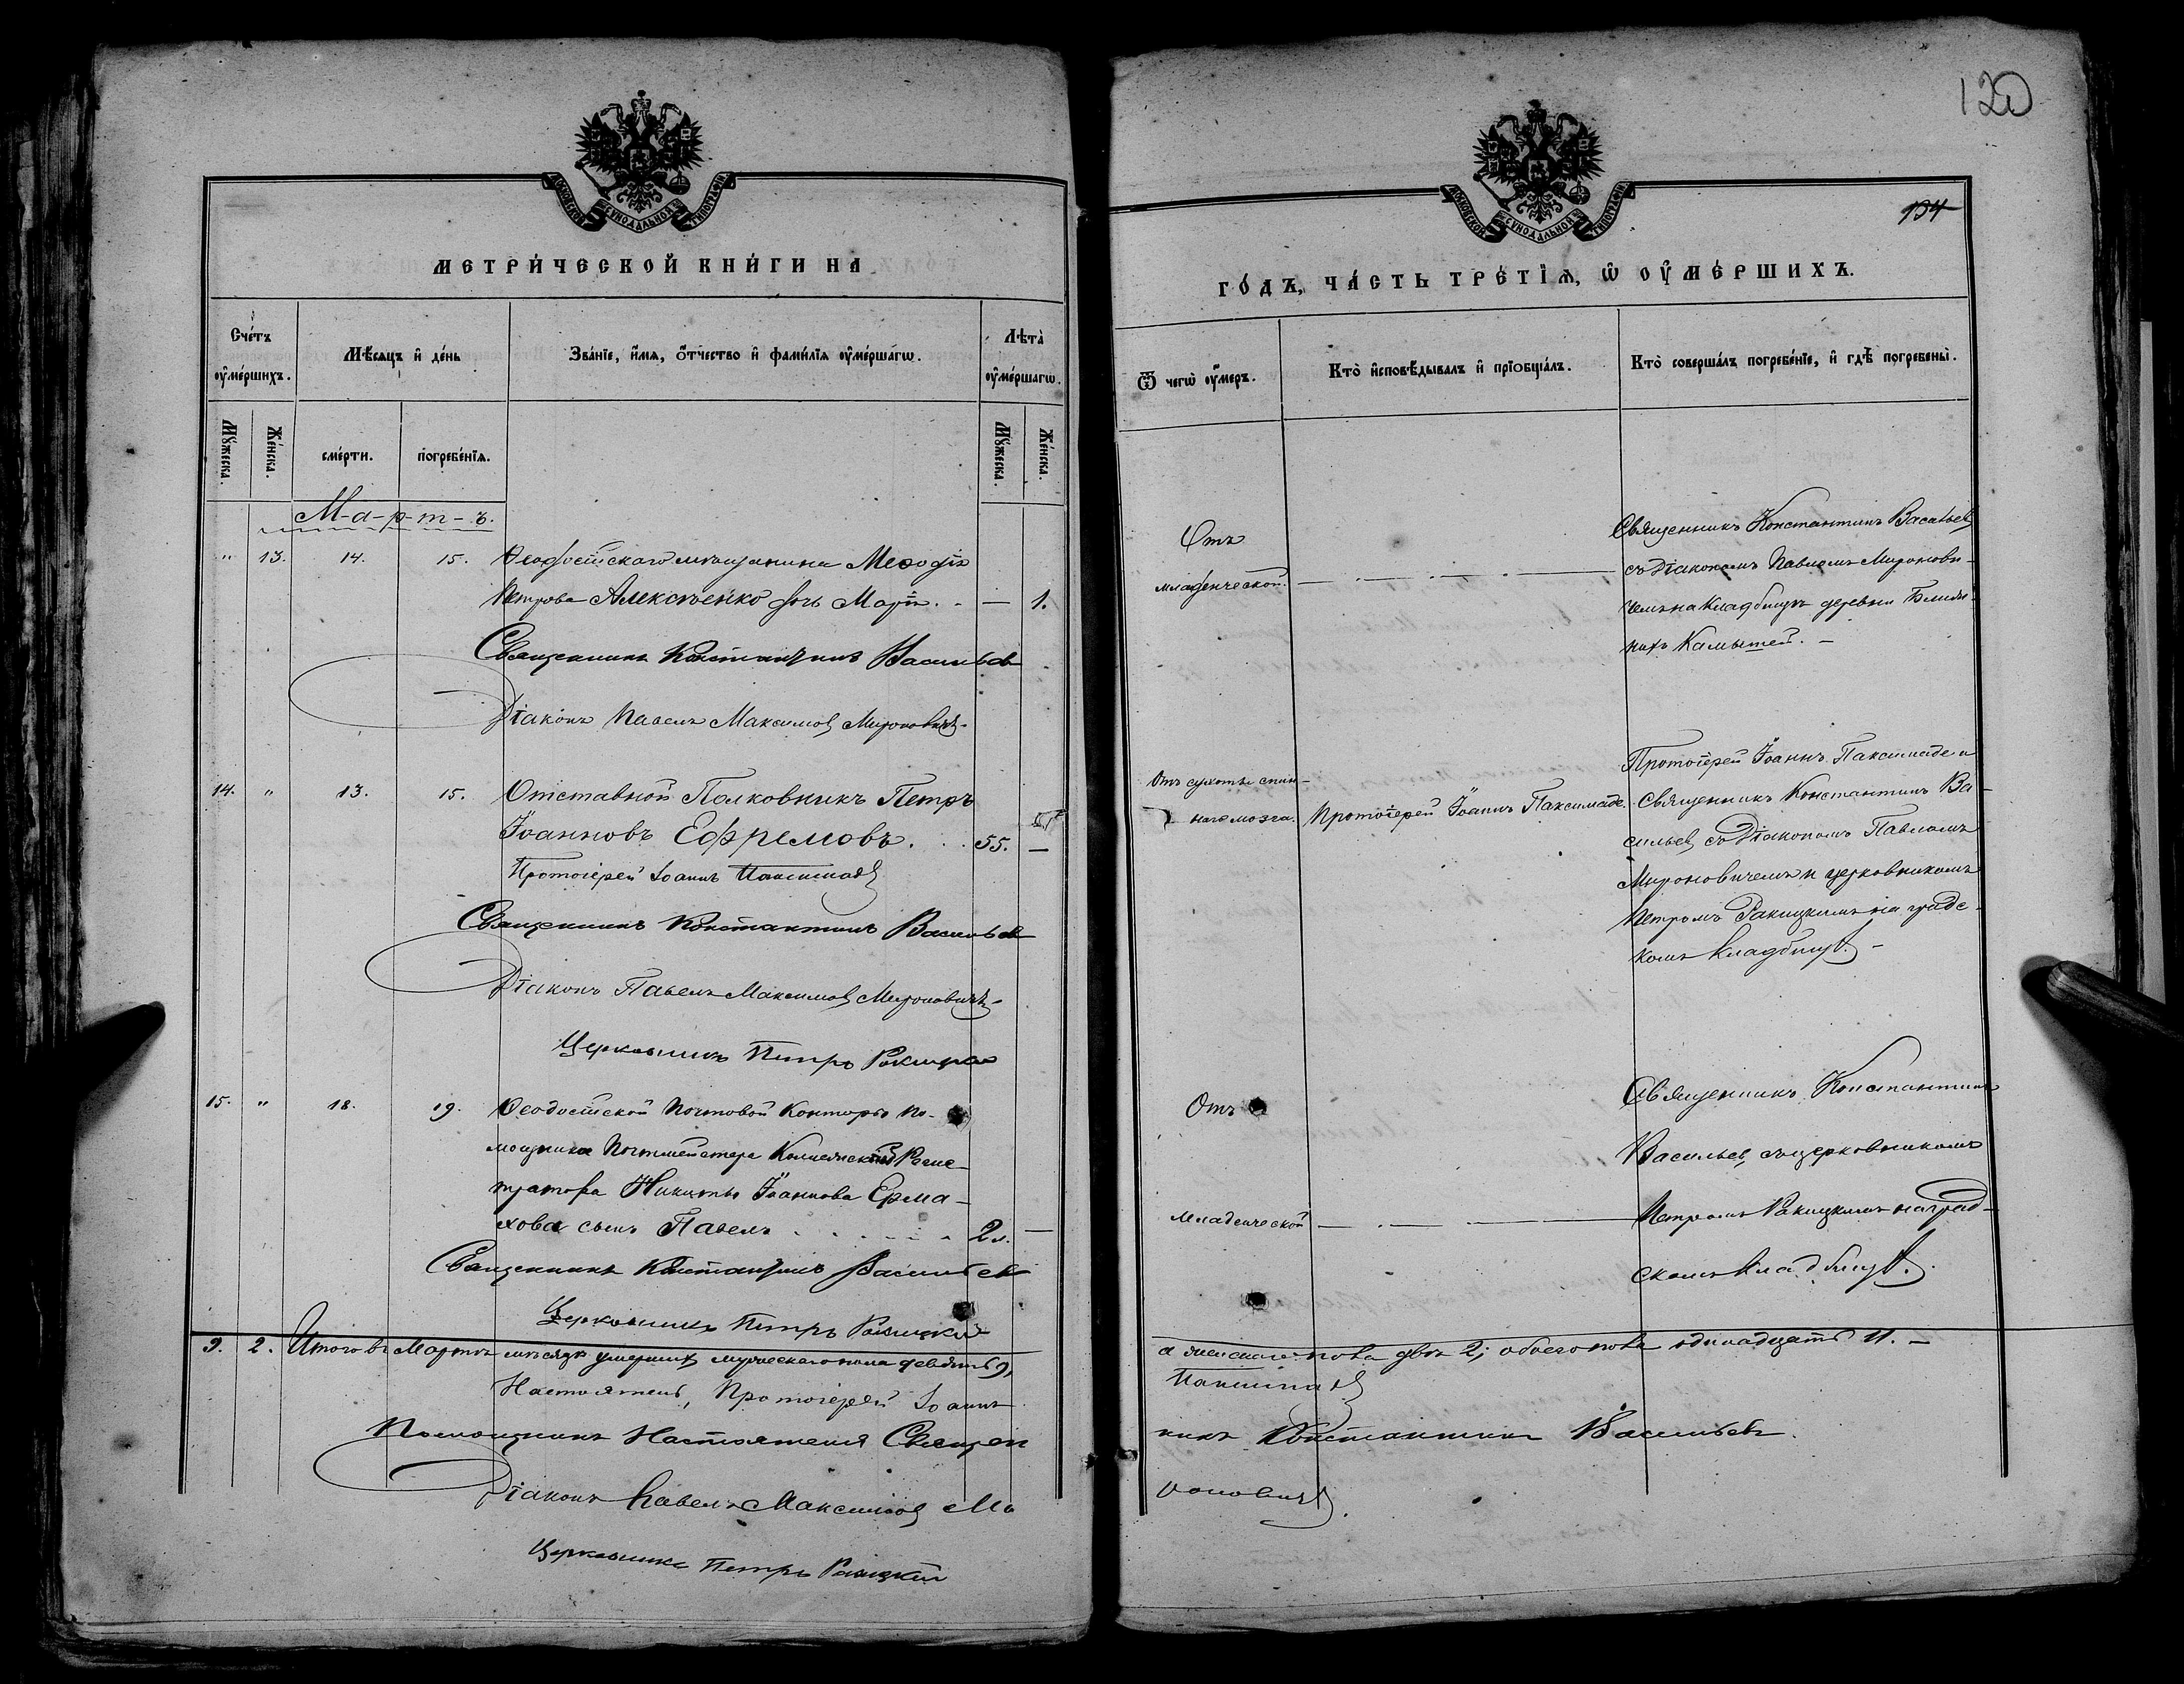 120
134
МОСКОВСКОЙ СѴНОДАЛЬНОЙ ТИПОГРАФІИ
МЕТРИ́ЧЕСКОЙ КНИ́ГИ НА
Сче́тъ оу҆ме́ршихъ.
Мѣ́сяцъ и҆ де́нь
Зва́нїе, и҆́мѧ, ѻ҆́тчество и҆ фами́лїѧ оу҆ме́ршагѡ.
Лѣта̀ оу҆ме́ршагѡ.
Мꙋ́жеска.
Же́нска.
сме́рти.
погребе́нїѧ.
Мꙋ́жеска.
Же́нска.
М-а-р-т-ъ.
" 13. 14. 15. Ѳеодосійскаго мѣщанина Меѳодія
Петрова Алексѣенко дочь Марія. — 1.
Священникъ Константинъ Васильевъ
Діаконъ Павелъ Максимовъ Мироновичъ.
14. " 13. 15. Отставной Полковникъ Петръ
Іоанновъ Ефремовъ. 55. —
Протоіерей Іоаннъ Паксимаде
Священникъ Константинъ Васильев
Діаконъ Павелъ Максимовъ Мироновичъ.
Церковникъ Петръ Ракицкій
15. " 18. 19. Ѳеодосійской Почтовой Конторы По-
мощника Почтмейстера Коллежскаго Регис-
тратора Никиты Іоаннова Ерма-
кова сынъ Павелъ 2. —
Священникъ Константинъ Васильев
Церковникъ Петръ Ракицкій
9. 2. Итого въ Мартѣ мѣсяцѣ умершихъ мужескаго пола девять 9,
Настоятель, Протоіерей Іоаннъ
Помощникъ Настоятеля Священ
Діаконъ Павелъ Максимовъ Ми
Церковникъ Петръ Ракицкій
МОСКОВСКОЙ СѴНОДАЛЬНОЙ ТИПОГРАФІИ
ГО́ДЪ, ЧА́СТЬ ТРЕ́ТЇѦ, Ѡ҆ ОУ҆МЕ́РШИХЪ.
Ѿ чегѡ̀ оу҆́меръ.
Кто̀ и҆сповѣ́дывалъ и҆ прїобща́лъ.
Кто̀ соверша́лъ погребе́нїе, и҆ гдѣ̀ погребены̀.
Отъ
младенческой.
Священникъ Константинъ Васильев
съ Діакономъ Павломъ Миронови-
чемъ на кладбищѣ деревни Ближ-
нихъ Камышей. —
Отъ сухоты спин-
наго мозга.
Протоіерей Іоаннъ Паксимаде.
Протоіерей Іоаннъ Паксимаде и
Священникъ Константинъ Ва-
сильев съ Діакономъ Павломъ
Мироновичемъ и церковникомъ
Петромъ Ракицкимъ на градс-
комъ кладбищѣ. —
Отъ
младенческой
Священникъ Константинъ
Васильев, съ церковникомъ
Петромъ Ракицкимъ на град-
скомъ кладбищѣ.
а женскаго пола двѣ 2; обоего пола одинадцать 11. —
Паксимаде
никъ Константинъ Васильевъ.
роновичъ.